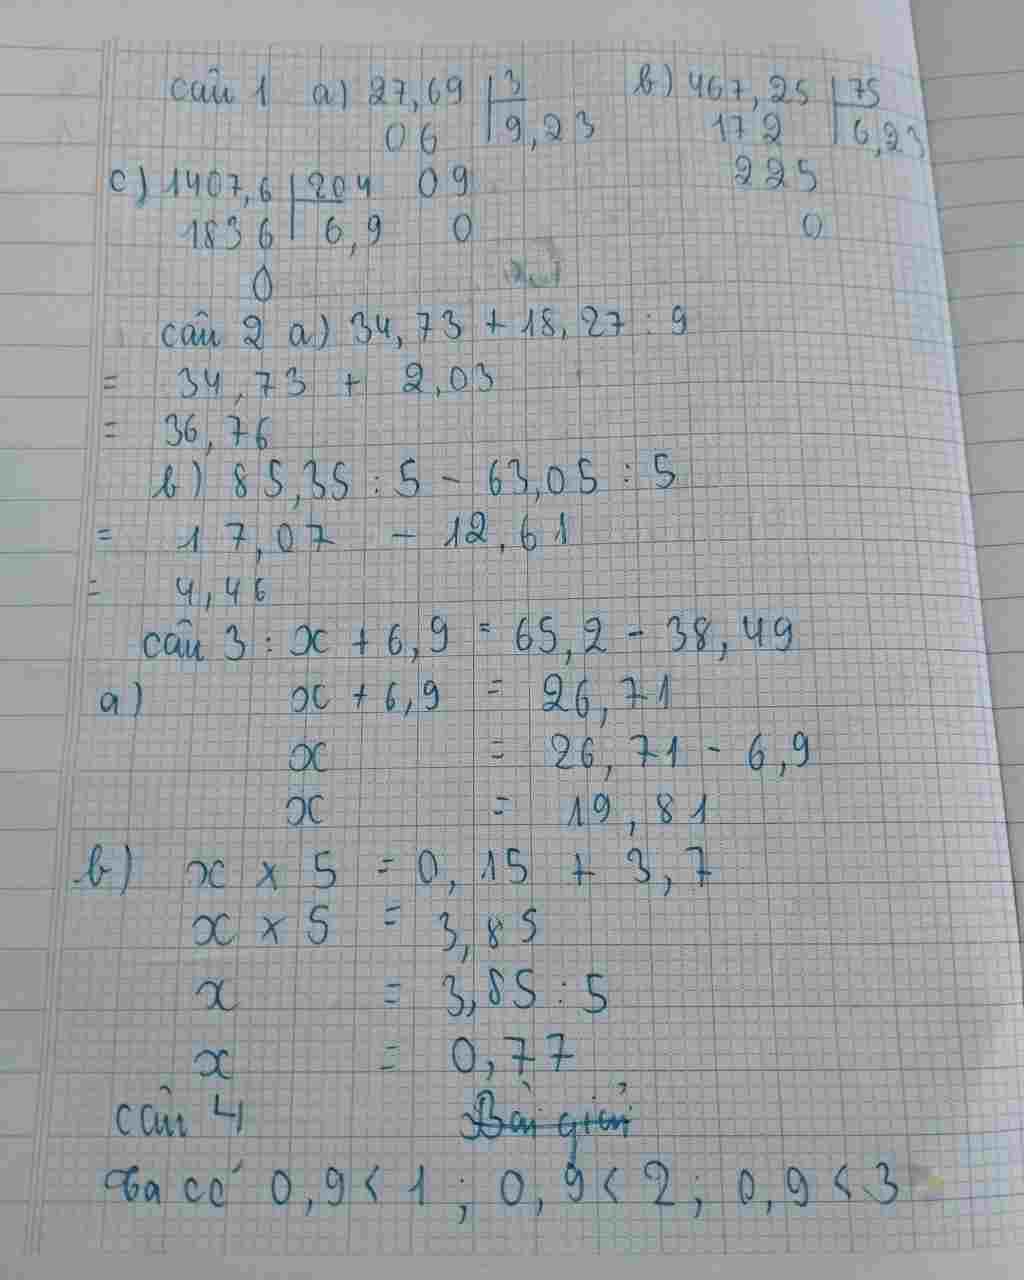 câu 1 a) 27,69 | 3 b) 467,25 | 75
06 9,23 172 6,23
c) 1407,6 | 204 09 225
1836 6,9 0 0
0
câu 2 a) 34,73 + 18,27 : 9
= 34,73 + 2,03
= 36,76
b) 85,35 : 5 - 63,05 : 5
= 17,07 - 12,61
= 4,46
câu 3 : x + 6,9 = 65,2 - 38,49
a) x + 6,9 = 26,71
x = 26,71 - 6,9
x = 19,81
b) x × 5 = 0,15 + 3,7
x × 5 = 3,85
x = 3,85 : 5
x = 0,77
câu 4 Bài giải
Ta có 0,9 < 1 ; 0,9 < 2 ; 0,9 < 3